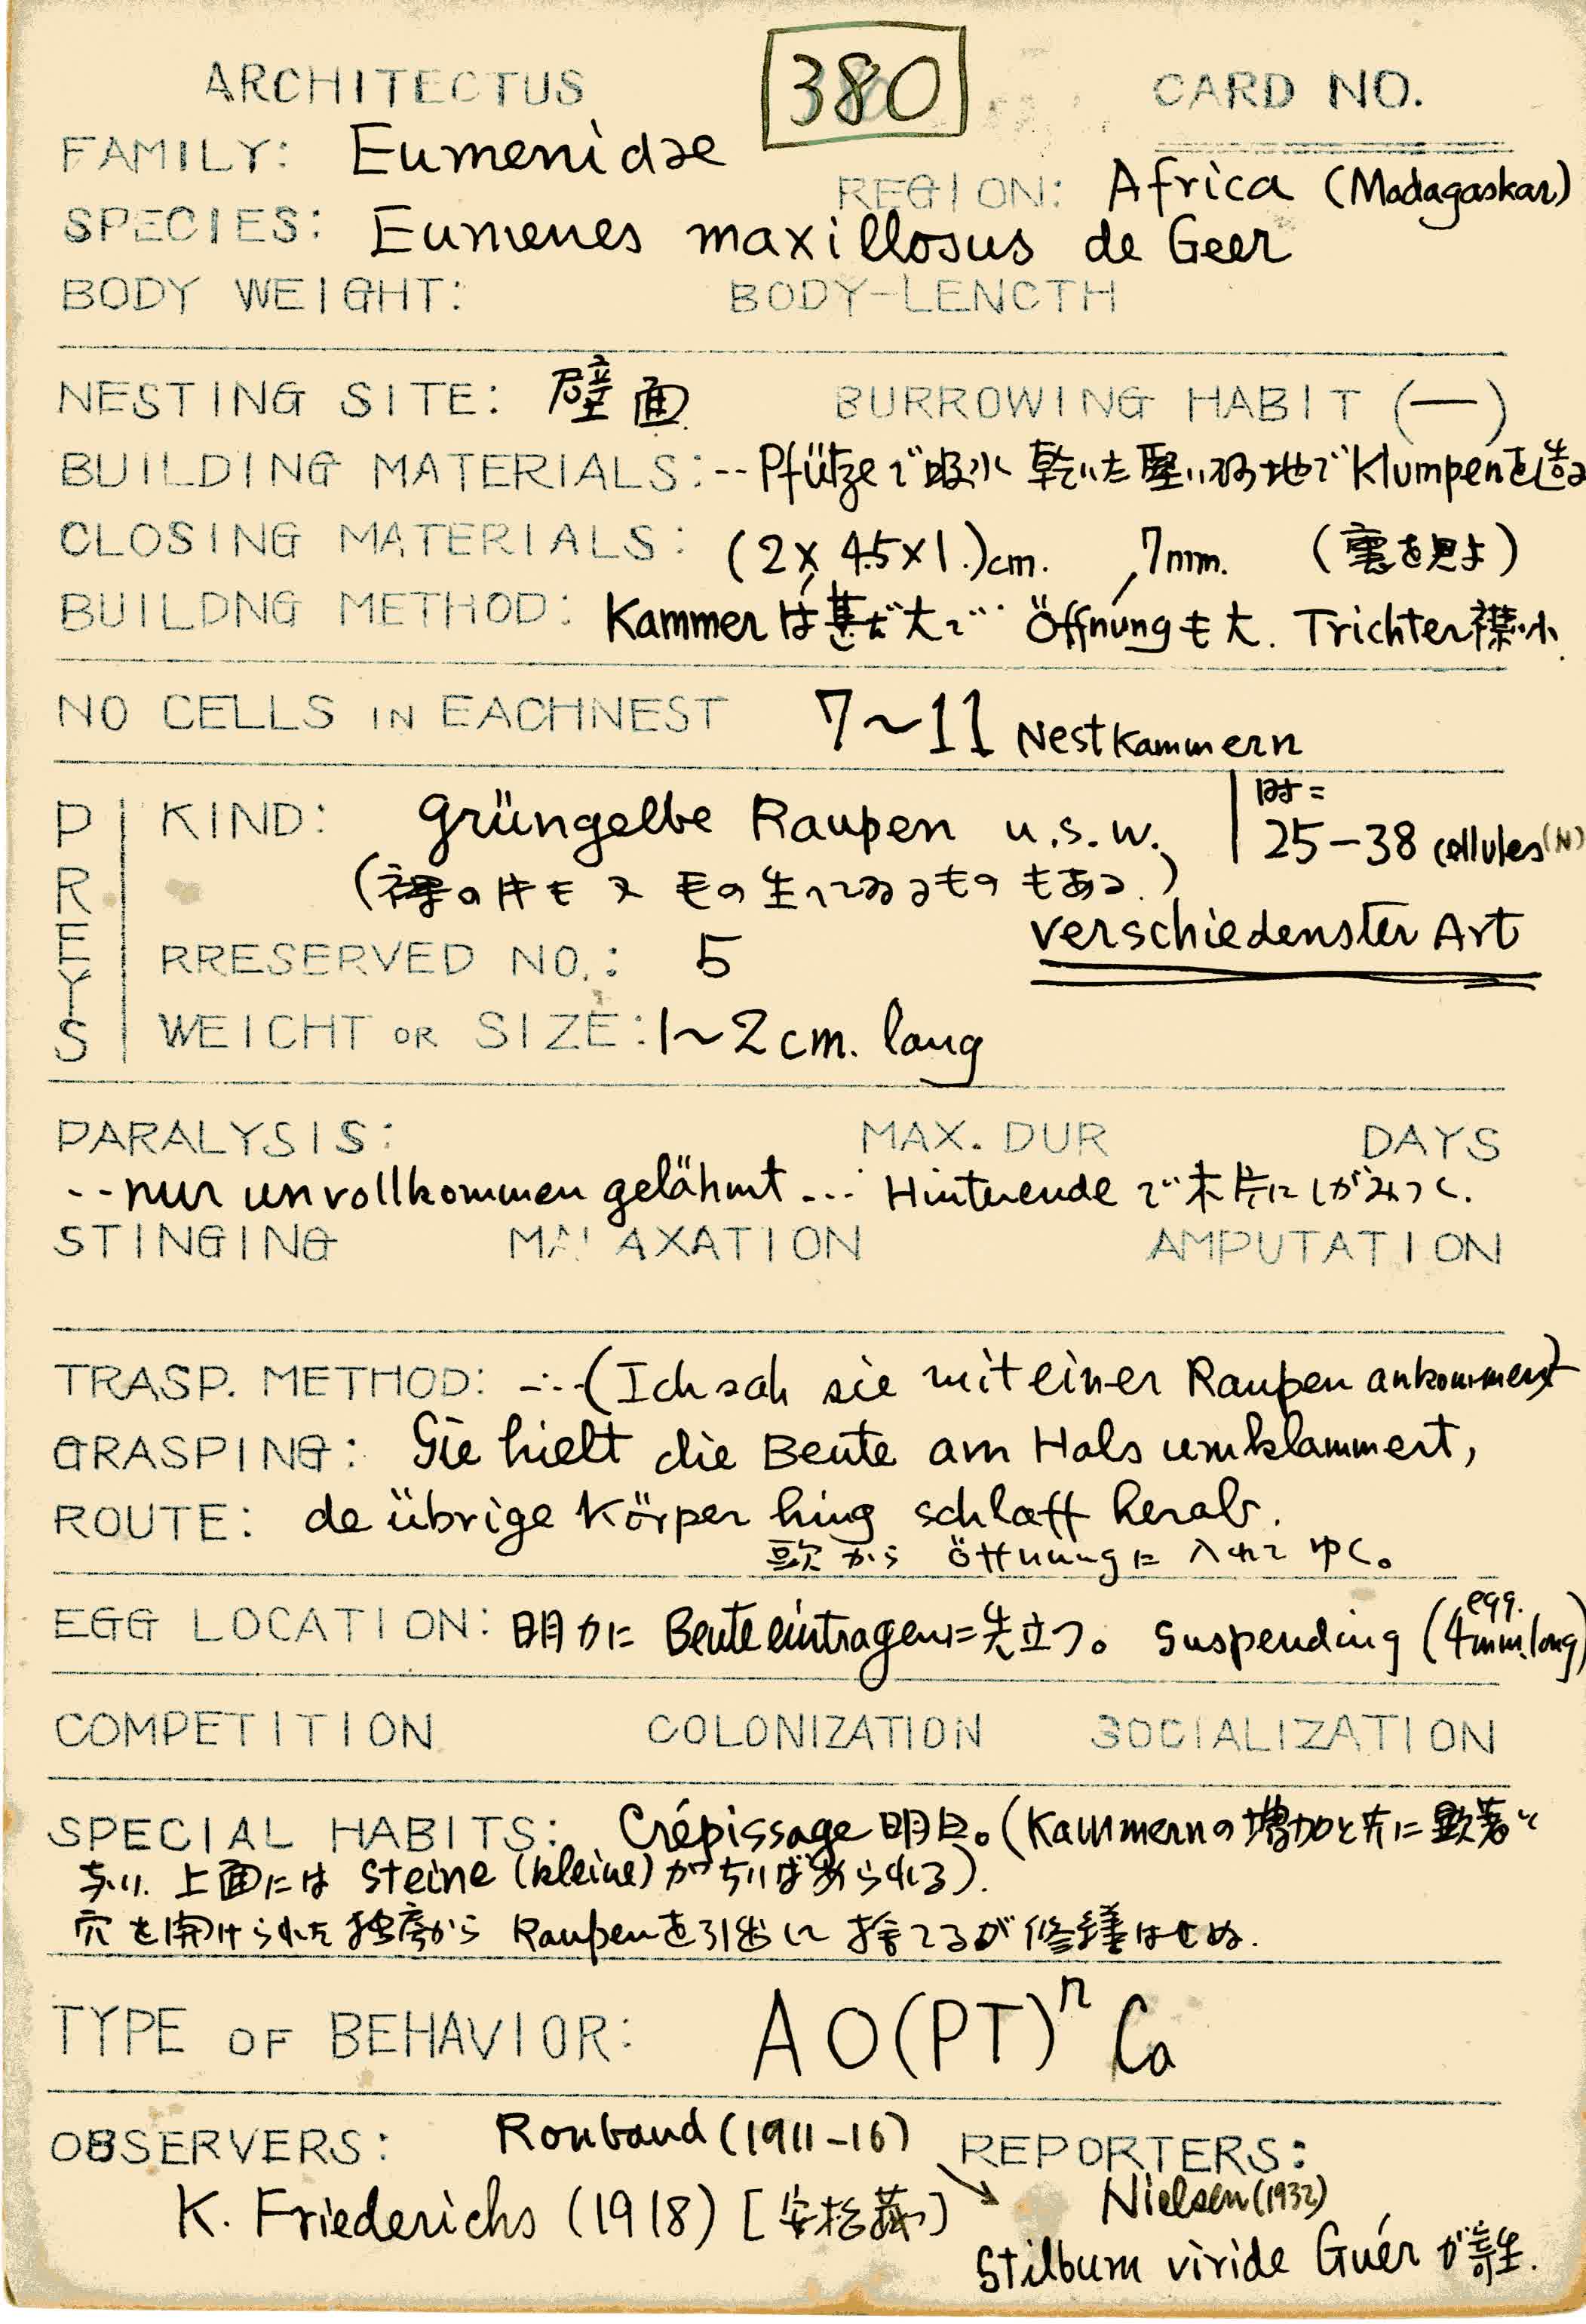 ARCHITECTUS 380 CARD NO.
FAMILY: Eumenidae
REGION: Africa (Madagaskar)
SPECIES: Eumenes maxillosus de Geer
BODY WEIGHT: BODY-LENCTH
NESTING SITE: 壁面 BURROWING HABIT (—)
BUILDING MATERIALS: -- Pfützeで吸水 乾いた堅い ... 地でKlumpenを造る
CLOSING MATERIALS: (2×4.5×1.)cm. 7mm. (裏を見よ)
BUILDNG METHOD: Kammerは甚だ大で Öffnungも大. Trichter襟小.
NO CELLS IN EACHNEST 7~11 Nestkammern
PREYS
KIND: grüngelbe Raupen u.s.w.
時=
25-38 cellules (N)
(裸のけも又毛の生へてゐるものもある.)
verschiedenster Art
RRESERVED NO.: 5
WEICHT OR SIZE: 1~2cm. lang
PARALYSIS: MAX. DUR DAYS
--nur unvollkommen gelähmt... Hinterendeで木片にしがみつく.
STINGING MALAXATION AMPUTATION
TRASP. METHOD: --- (Ich sah sie mit einer Raupen ankommen)
GRASPING: Sie hielt die Beute am Hals umklammert,
ROUTE: de übrige Körper hing schlaff herab.
頭から Öffnungに入れてゆく。
EGG LOCATION: 明かに Beuteeintragenに先立つ。 Suspending (egg. 4mm. long)
COMPETITION COLONIZATION SOCIALIZATION
SPECIAL HABITS: Crépissage 明瞭。(Kammernの増加と共に顕著と
なり. 上面には Steine (kleine)がちりばめられる).
穴を開けられた 独房から Raupenを引出して捨てるが修繕はせぬ.
TYPE OF BEHAVIOR: AO(PT)ⁿ Ca
OBSERVERS: Roubaud (1911-16) REPORTERS:
K. Friederichs (1918) [安松 ...] Nielsen (1932)
Stilbum viride Guér が寄生.